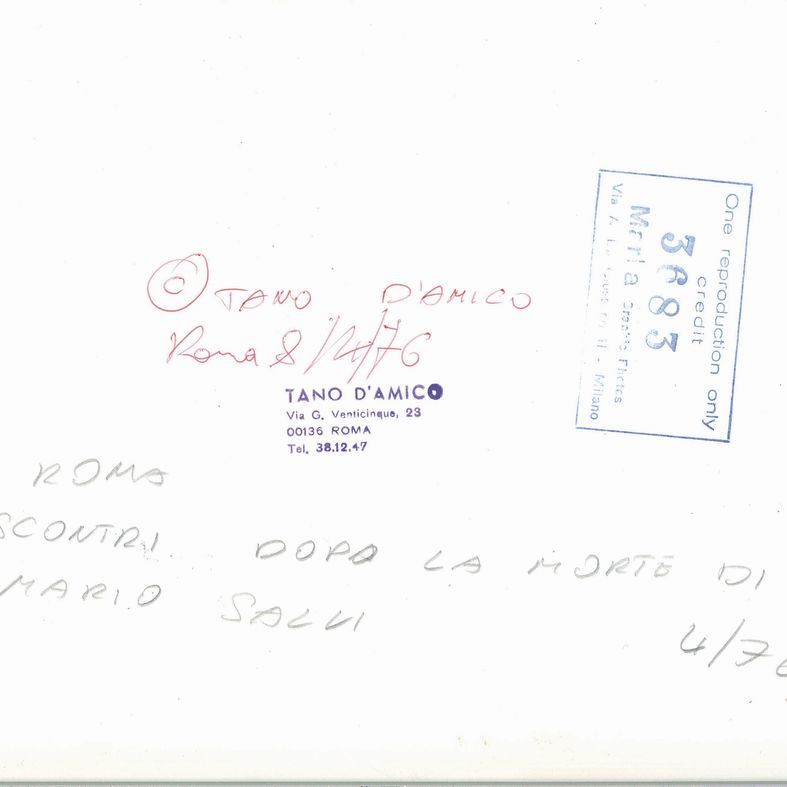 © TANO D'AMICO
Roma 8/4/76
TANO D'AMICO
Via G. Venticinque, 23
00136 ROMA
Tel. 38.12.47
One reproduction only
credit
3683
Marka Graphic Photos
Via 11 - Milano
ROMA
SCONTRI DOPO LA MORTE DI
MARIO SALVI
4/76